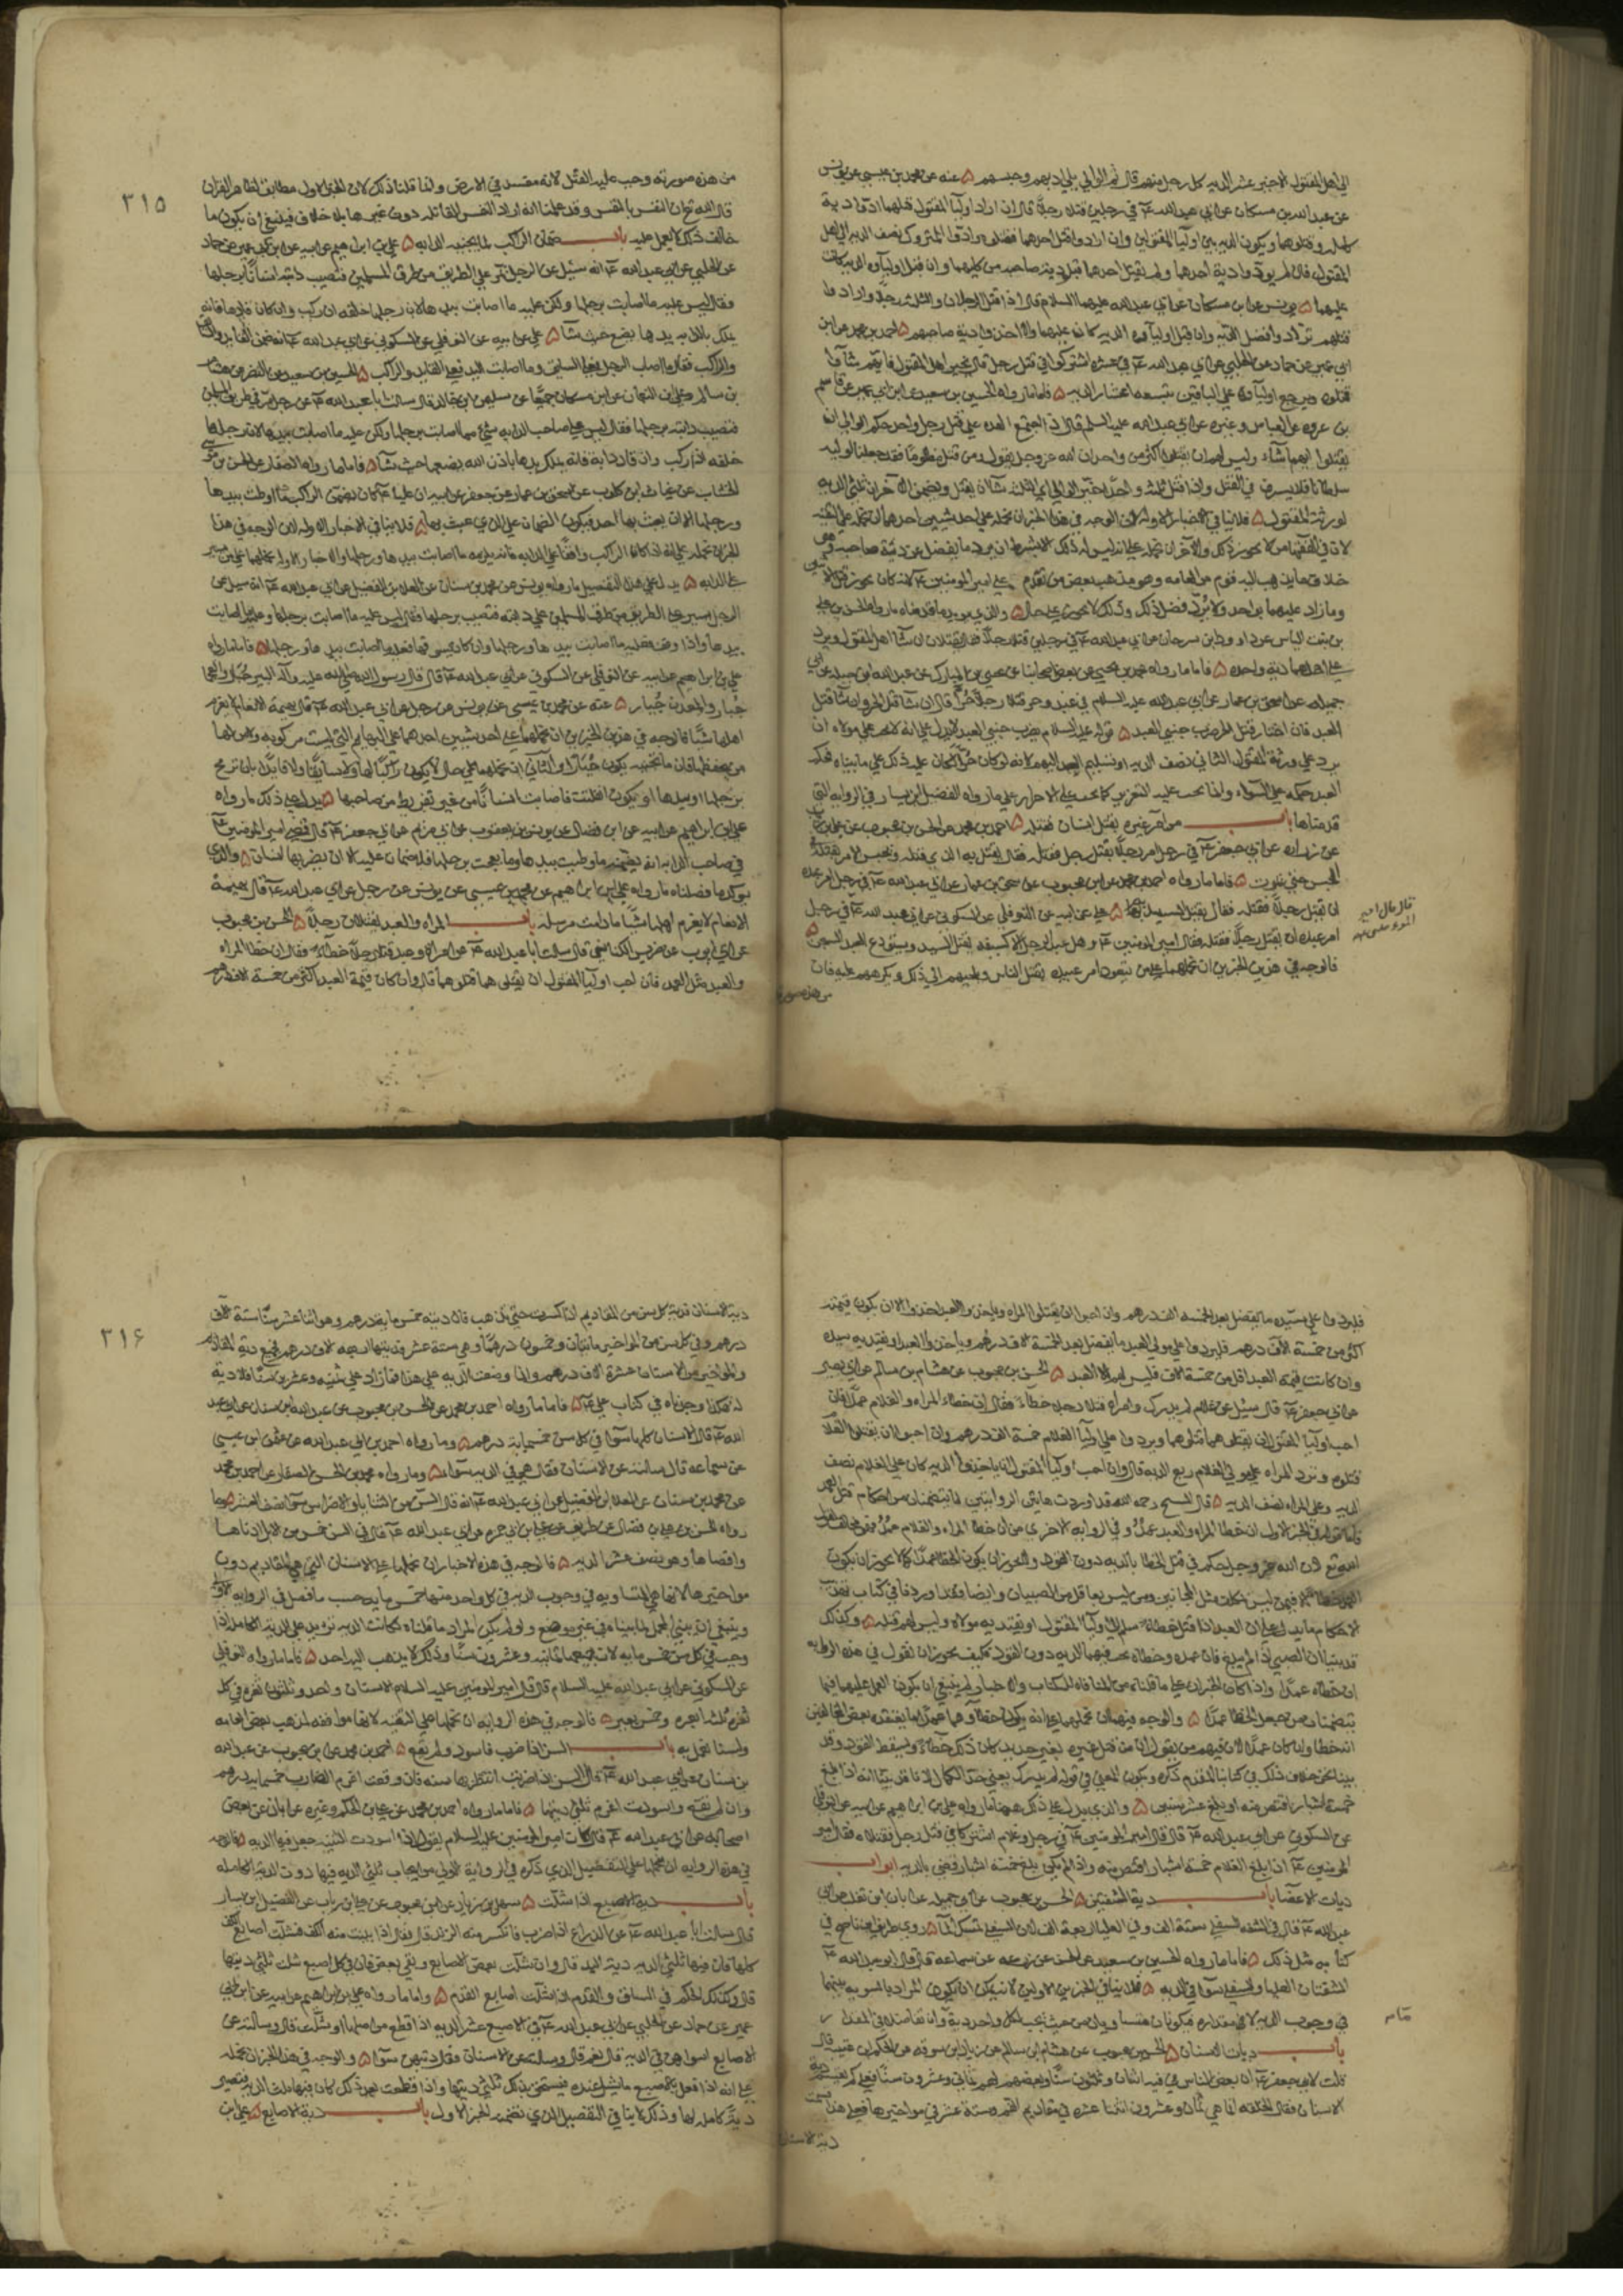 الى اهل المقتول الاخير عشر الديه كل رجل منهم قال ثم الوالي يلي ادبهم وحبسهم ۵ عنه عن محمد بن عيسى عن يونس
عن عبد الله بن مسكان عن ابي عبد الله ع في رجلين قتلا رجلا قال ان اراد اوليآ المقتول قتلهما ادوا دية
كامله وقتلوهما ويكون الديه بين اوليآ المقتولين وان ارادوا قتل احدهما فقتلوه وادوا المتروك نصف الديه الى اهل
المقتول
عليهما ۵ يونس عن ابن مسكان عن ابي عبد الله عليهما السلام قال اذا قتل الرجلان والثلثه رجلا واراد وا
قتلهم ترادوا فضل الديه وان قبل اوليآوه الديه كانت عليهما والا اخذوا دية صاحبهم ۵ احمد بن محمد عن ابن
ابي عمير عن حماد عن الحلبي عن ابي عبد الله ع في عشرة اشتركوا في قتل رجل قال يخير اهل المقتول فايهم شآوا
قتلوه ويرجع اوليآوه على الباقين بتسعه اعشار الديه ۵ فاما ما رواه الحسين بن سعيد عن ابن ابي عمير عن قاسم
بن عروه عن ابي العباس وغيره عن ابي عبد الله عليه السلم قال اذا اجتمع العده على قتل رجل واحد حكم الوالي ان
يقتلوا ايهم شآء وليس لهم ان يقتلوا اكثر من واحد ان الله عز وجل يقول ومن قتل مظلوما فقد جعلنا لوليه
سلطانا فلا يسرف في القتل واذا قتل ثلثه واحدا خير الوالي اي الثلثه شآ ان يقتل ويضمن الآخران ثلثي الديه
لورثة المقتول ۵ فلا ينافي الاخبار الاوله لان الوجه في هذا الخبر ان نحمله على احد شيين احدهما ان نحمله على التقيه
لان في الفقهآ من لا يجوز ذلك والآخر ان نحمله على انه ليس له ذلك الا بشرط ان يرد ما يفضل عن دية صاحبه وهو
خلاف ما يذهب اليه قوم من العامه وهو مذهب بعض من تقدم على امير المومنين ع لانه كان يجوز قتل الاثنين
وما زاد عليهما بواحد ولا يرد فضل ذلك وذلك لا يجوز على حال ۵ والذي يويد ما قدمناه ما رواه الحسن بن علي
بن بنت الياس عن داود بن سرحان عن ابي عبد الله ع في رجلين قتلا رجلا قال يقتلان ان شآ اهل المقتول ويرد
على اهلهما دية واحده ۵ فاما ما رواه محمد بن يحيى عن بعض اصحابنا عن يحيى بن المبارك عن عبد الله بن جبله عن ابي
جميله عن اسحق بن عمار عن ابي عبد الله عليه السلام في عبد وحر قتلا رجلا حرا قال ان شآ قتل الحر وان شآ قتل
العبد فان اختار قتل الحر ضرب جنبي العبد ۵ قوله عليه السلام يضرب جنبي العبد لا يدل على انه لا يجب على مولاه ان
يرد على ورثة المقتول الثاني نصف الديه او تسليم العبد اليهم لانه لو كان حرا لكان عليه ذلك على ما بيناه فحكم
العبد حكمه على السواء وانما يجب عليه التعزير كما يجب على الاحرار على ما رواه الفضيل بن يسار في الروايه التي
قدمناها باب من امر غيره بقتل انسان فقتله ۵ احمد بن محمد عن الحسن بن محبوب عن علي بن رياب
عن زراره عن ابي جعفر ع في رجل امر رجلا بقتل رجل فقتله فقال يقتل به الذي قتله ويحبس الامر بقتله في
الحبس حتى يموت ۵ فاما ما رواه احمد بن محمد عن ابن محبوب عن اسحق بن عمار عن ابي عبد الله ع في رجل امر عبده
ان يقتل رجلا فقتله فقال يقتل السيد به ۵ علي عن ابيه عن النوفلي عن السكوني عن ابي عبد الله ع في رجل
امر عبده ان يقتل رجلا فقتله فقال امير المومنين ع وهل عبد الرجل الا كسيفه يقتل السيد ويستودع العبد السجن ۵
فالوجه في هذين الخبرين ان نحملهما على من يتعود امر عبيده بقتل الناس ويلجيهم الى ذلك ويكرههم عليه فان
من هذه صورته
قال قال امير
٣١٥
من هذه صورته وجب عليه القتل لانه مفسد في الارض وانما قلنا ذلك لان الخبر الاول مطابق لظاهر القران
قال الله تع ان النفس بالنفس وقد علمنا انه اراد النفس القاتله دون غيرها بلا خلاف فينبغي ان يكون ما
خالف ذلك لا يعمل عليه باب ضمان الراكب لما يجنيه الدابه ۵ علي بن ابراهيم عن ابيه عن ابن ابي عمير عن حماد
عن الحلبي عن ابي عبد الله ع انه سئل عن الرجل يمر على الطريق من طرق المسلمين فتصيب دابته انسانا برجلها
فقال ليس عليه ما اصابت برجلها ولكن عليه ما اصابت بيدها لان رجلها خلفه ان ركب وان كان قايدها فانه
يملك باذن الله يدها يضع حيث شآ ۵ علي عن ابيه عن النوفلي عن السكوني عن ابي عبد الله ع انه ضمن القايد والسايق
والراكب فقال ما اصاب الرجل فعلى السايق وما اصابت اليد فعلى القايد والراكب ۵ الحسين بن سعيد عن النضر عن هشام
بن سالم وعلي بن النعمان عن ابن مسكان جميعا عن سليمن بن خالد قال سالت ابا عبد الله ع عن رجل مر في طريق المسلمين
فتصيب دابته برجلها فقال ليس على صاحب الدابه شئ مما اصابت برجلها ولكن عليه ما اصابت بيدها لان رجلها
خلفه اذا ركب وان قاد دابة فانه يملك يدها باذن الله يضعها حيث شآ ۵ فاما ما رواه الصفار عن الحسن بن موسى
الخشاب عن غياث بن كلوب عن اسحق بن عمار عن جعفر عن ابيه ان عليا ع كان يضمن الراكب ما اوطت بيدها
ورجلها الا ان يعبث بها احد فيكون الضمان على الذي عبث بها ۵ فلا ينافي الاخبار الاوله لان الوجه في هذا
الخبر ان نحمله على انه اذا كان الراكب واقفا على الدابه فانه يلزمه ما اصابت بيدها ورجلها والاخبار الاوله نحملها على من يسير
على الدابه ۵ يدل على هذا التفصيل ما رواه يونس عن محمد بن سنان عن العلا بن الفضيل عن ابي عبد الله ع انه سيل عن
الرجل يسير على الطريق من طرق المسلمين على دابته فتصيب برجلها قال ليس عليه ما اصابت برجلها وعليه ما اصابت
بيدها واذا وقف فعليه ما اصابت بيدها ورجلها وان كان يسوقها فعليه ما اصابت بيدها ورجلها ۵ فاما ما رواه
علي بن ابراهيم عن ابيه عن النوفلي عن السكوني عن ابي عبد الله ع قال قال رسول الله صلى الله عليه وآله البير جبار والعجما
جبار والمعدن جبار ۵ عنه عن محمد بن عيسى عن يونس عن رجل عن ابي عبد الله ع قال بهيمة الانعام لا يغرم
اهلها شيئا فالوجه في هذين الخبرين ان نحملهما على احد شيين احدهما على البهايم التي ليست مركوبه
برجلها او بيدها او يكون افلتت فاصابت انسانا من غير تفريط من صاحبها ۵ يدل على ذلك ما رواه
علي بن ابراهيم عن ابيه عن ابن فضال عن يونس بن يعقوب عن ابي مريم عن ابي جعفر ع قال قضى امير المومنين ع
في صاحب الدابه انه يضمن ما وطيت بيدها وما بعجت برجلها فلا ضمان عليه الا ان يضربها انسان ۵ والذي
يوكد ما فصلناه ما رواه علي بن ابراهيم عن محمد بن عيسى عن يونس عن رجل عن ابي عبد الله ع قال بهيمة
الانعام لا يغرم اهلها شيئا ما دامت مرسله باب المراه والعبد يقتلان رجلا ۵ الحسن بن محبوب
عن ابي ايوب عن ضريس الكناسي قال سالت ابا عبد الله ع عن امراة وعبد قتلا رجلا خطآء فقال ان خطا المراه
والعبد مثل العمد فان احب اوليآ المقتول ان يقتلوهما قتلوهما قال وان كان قيمة العبد اكثر من خمسة الاف درهم
فليردوا على سيده ما يفضل بعد الخمسه الف درهم وان احبوا ان يقتلوا المراه وياخذوا العبد اخذوا الا ان يكون قيمته
اكثر من خمسة الآف درهم فليردوا على مولى العبد ما يفضل بعد الخمسة الاف درهم وياخذوا العبد او يفتديه سيده
وان كانت قيمة العبد اقل من خمسة الاف فليس لهم الا العبد ۵ الحسن بن محبوب عن هشام بن سالم عن ابي بصير
عن ابي جعفر ع قال سيل عن غلام لم يدرك وامراه قتلا رجلا خطآء فقال ان خطآء المراه والغلام عمد فان
احب اوليآ المقتول ان يقتلوهما قتلوهما ويردوا على اوليآ الغلام خمسة الف درهم وان احبوا ان يقتلوا الغلام
قتلوه وترد المراه على مولى الغلام ربع الديه قال وان احب اوليآ المقتول ان ياخذوا الديه كان على الغلام نصف
الديه وعلى المراه نصف الديه ۵ قال الشيخ رحمه الله قد اوردت هاتين الروايتين لما يتضمنان من احكام قتل العمد
فاما قوله في الخبر الاول ان خطا المراه والعبد عمد وفي الروايه الاخرى من ان خطا المراه والغلام عمد فهو مخالف لقول
الله تع لان الله عز وجل حكم في قتل الخطا بالديه دون القود ولا يجوز ان يكون الخطا عمدا كما لا يجوز ان يكون
العمد خطآء الا فيمن ليس بمكلف مثل المجانين ومن ليس بعاقل من الصبيان وايضا فقد اوردنا في كتاب تهذيب
الاحكام ما يدل على ان العبد اذا قتل خطآء سلم الى اوليآ المقتول او يفتديه مولاه وليس لهم قتله ۵ وكذلك
قد بينا ان الصبي اذا لم يبلغ فان عمده وخطآه يجب فيهما الديه دون القود فكيف يجوز ان نقول في هذه الروايه
ان خطاه عمدا واذا كان الخبران على ما قلناه من المنافاه للكتاب والاخبار لم ينبغ ان يكون العمل عليهما فيما
يتضمنان من جعل الخطا عمدا ۵ والوجه فيهما ان نحملهما على انه يكون خطآ وهو عمد لما يعتقده بعض المخالفين
انه خطا وان كان عمدا لان فيهم من يقول ان من قتل غيره بغير حديد كان ذلك خطآء ويسقط القود وقد
بينا نحن خلاف ذلك في كتابنا المقدم ذكره ويكون المعني في قوله لم يدرك يعني حد الكمال لانا قد بينا انه اذا بلغ
خمسة اشبار اقتص منه او بلغ عشر سنين ۵ والذي يدل على ذلك ههنا ما رواه علي بن ابراهيم عن ابيه عن النوفلي
عن السكوني عن ابي عبد الله ع قال قال امير المومنين ع في رجل وغلام اشتركا في قتل رجل فقتلاه فقال امير
المومنين ع اذا بلغ الغلام خمسة اشبار اقتص منه واذا لم يكن بلغ خمسة اشبار قضي بالديه ابواب
ديات الاعضا باب دية الشفتين ۵ الحسن بن محبوب عن ابي جميله عن ابان بن تغلب عن ابي
عبد الله ع قال في الشفه السفلي ستة الف وفي العليا اربعة الف لان السفلي تمسك المآ ۵ وروى ظريف بن ناصح في
كتابه مثل ذلك ۵ فاما ما رواه الحسين بن سعيد عن الحسن عن زرعه عن سماعه قال قال ابو عبد الله ع
الشفتان العليا والسفلي سوآ في الديه ۵ فلا ينافي الخبرين الاولين لانه يمكن ان يكون المراد بالتسويه بينهما
في وجوب الديه لا في مقداره فيكونان متساويان من حيث يجب لكل واحد دية وان تفاضلا في المقدار
باب ديات الاسنان ۵ الحسن بن محبوب عن هشام بن سالم عن زياد بن سوقه عن الحكم بن عتيبه قال
قلت لابي جعفر ع ان بعض الناس في فيه اثنان وثلثون سنا وبعضهم لهم ثماني وعشرون سنا فعلى كم تقسم دية
الاسنان فقال الخلقه انما هي ثمان وعشرون اثنتا عشره في مقاديم الفم وستة عشر في مواخيرها فعلى هذا قسمت
دية الاسنان
٣١۶
دية الاسنان فدية كل سن من المقاديم اذا كسرت حتى يذهب فان ديته خمس مايه درهم وهي اثنا عشر سنا ستة الاف
درهم وفي كل سن من المواخير مايتان وخمسون درهما وهي ستة عشر فديتها اربعه الاف درهم فجميع دية المقاديم
والمواخير من الاسنان عشرة الاف درهم وانما وضعت الديه على هذا فما زاد على ثمنيه وعشرين سنا فلا دية
له هكذا وجدناه في كتاب علي ع ۵ فاما ما رواه احمد بن محمد عن الحسن بن محبوب عن عبد الله بن سنان عن ابي عبد
الله ع قال الاسنان كلها سوآ في كل سن خمسمايه درهم ۵ وما رواه احمد بن ابي عبد الله عن عثمن بن عيسى
عن سماعه قال سالته عن الاسنان فقال هي في الديه سوآء ۵ وما رواه محمد بن الحسن الصفار عن احمد بن محمد
عن محمد بن سنان عن العلا بن الفضيل عن ابي عبد الله ع انه قال السن من الثنايا والاضراس سوآ نصف العشر ۵ وما
رواه الحسن بن علي بن فضال عن ظريف عن علي بن ابي حمزه عن ابي عبد الله ع قال في السن خمس من الابل ادناها
واقصاها وهو نصف عشر الديه ۵ فالوجه في هذه الاخبار ان نحملها على الاسنان التي هي المقاديم دون
مواخيرها لانها هي المتساويه في وجوب الديه في كل واحد منها خمس مايه حسب ما فصل في الروايه الاوله
وجب في كل سن خمس مايه لان جميعها ثمانيه وعشرون سنا وذلك لا يذهب اليه احد ۵ فاما ما رواه النوفلي
عن السكوني عن ابي عبد الله عليه السلام قال قال امير المومنين عليه السلام الاسنان واحد وثلثون ثغره في كل
ثغره ثلثه ابعره وخمس بعير ۵ فالوجه في هذه الروايه ان نحملها على التقيه لانها موافقه لمذهب بعض العامه
ولسنا نعمل به باب السن اذا ضرب فاسود ولم يقع ۵ احمد بن محمد عن ابن محبوب عن عبد الله
بن سنان عن ابي عبد الله ع قال السن اذا ضربت انتظر بها سنه فان وقعت اغرم الضارب خمسمايه درهم
وان لم تقع واسودت اغرم ثلثي ديتها ۵ فاما ما رواه احمد بن محمد عن علي بن الحكم وغيره عن ابان عن بعض
اصحابه عن ابي عبد الله ع قال كان امير المومنين عليه السلام يقول اذا اسودت الثنيه جعل فيها الديه ۵ فالوجه
في هذه الروايه ان نحملها على التفصيل الذي ذكره في الروايه الاولى من ايجاب ثلثي الديه فيها دون الديه الكامله
باب دية الاصبع اذا شلت ۵ سهل بن زياد عن ابن محبوب عن علي بن رياب عن الفضيل بن يسار
قال سالت ابا عبد الله ع عن الذراع اذا ضرب فانكسر منه الزند قال فقال اذا يبست منه الكف فشلت اصابع الكف
كلها فان فيها ثلثي الديه دية اليد قال وان شلت بعض الاصابع وبقي بعض فان في كل اصبع شلت ثلثي ديتها
قال وكذلك الحكم في الساق والقدم اذا شلت اصابع القدم ۵ واما ما رواه علي بن ابراهيم عن ابيه عن ابن ابي
عمير عن حماد عن الحلبي عن ابي عبد الله ع في الاصبع عشر الديه اذا قطع من اصلها او شلت قال وسالته عن
الاصابع اسوا هن في الديه قال نعم قال وسالته عن الاسنان فقال ديتهن سوآ ۵ والوجه في هذا الخبر ان نحمله
على انه اذا فعل بالاصبع ما يشل عنده فيستحق بذلك ثلثي ديتها واذا قطعت بعد ذلك كان فيها ثلث الديه فتصير
دية كامله لها وذلك لا ينافي التفصيل الذي تضمنه الخبر الاول باب دية الاصابع ۵ علي بن